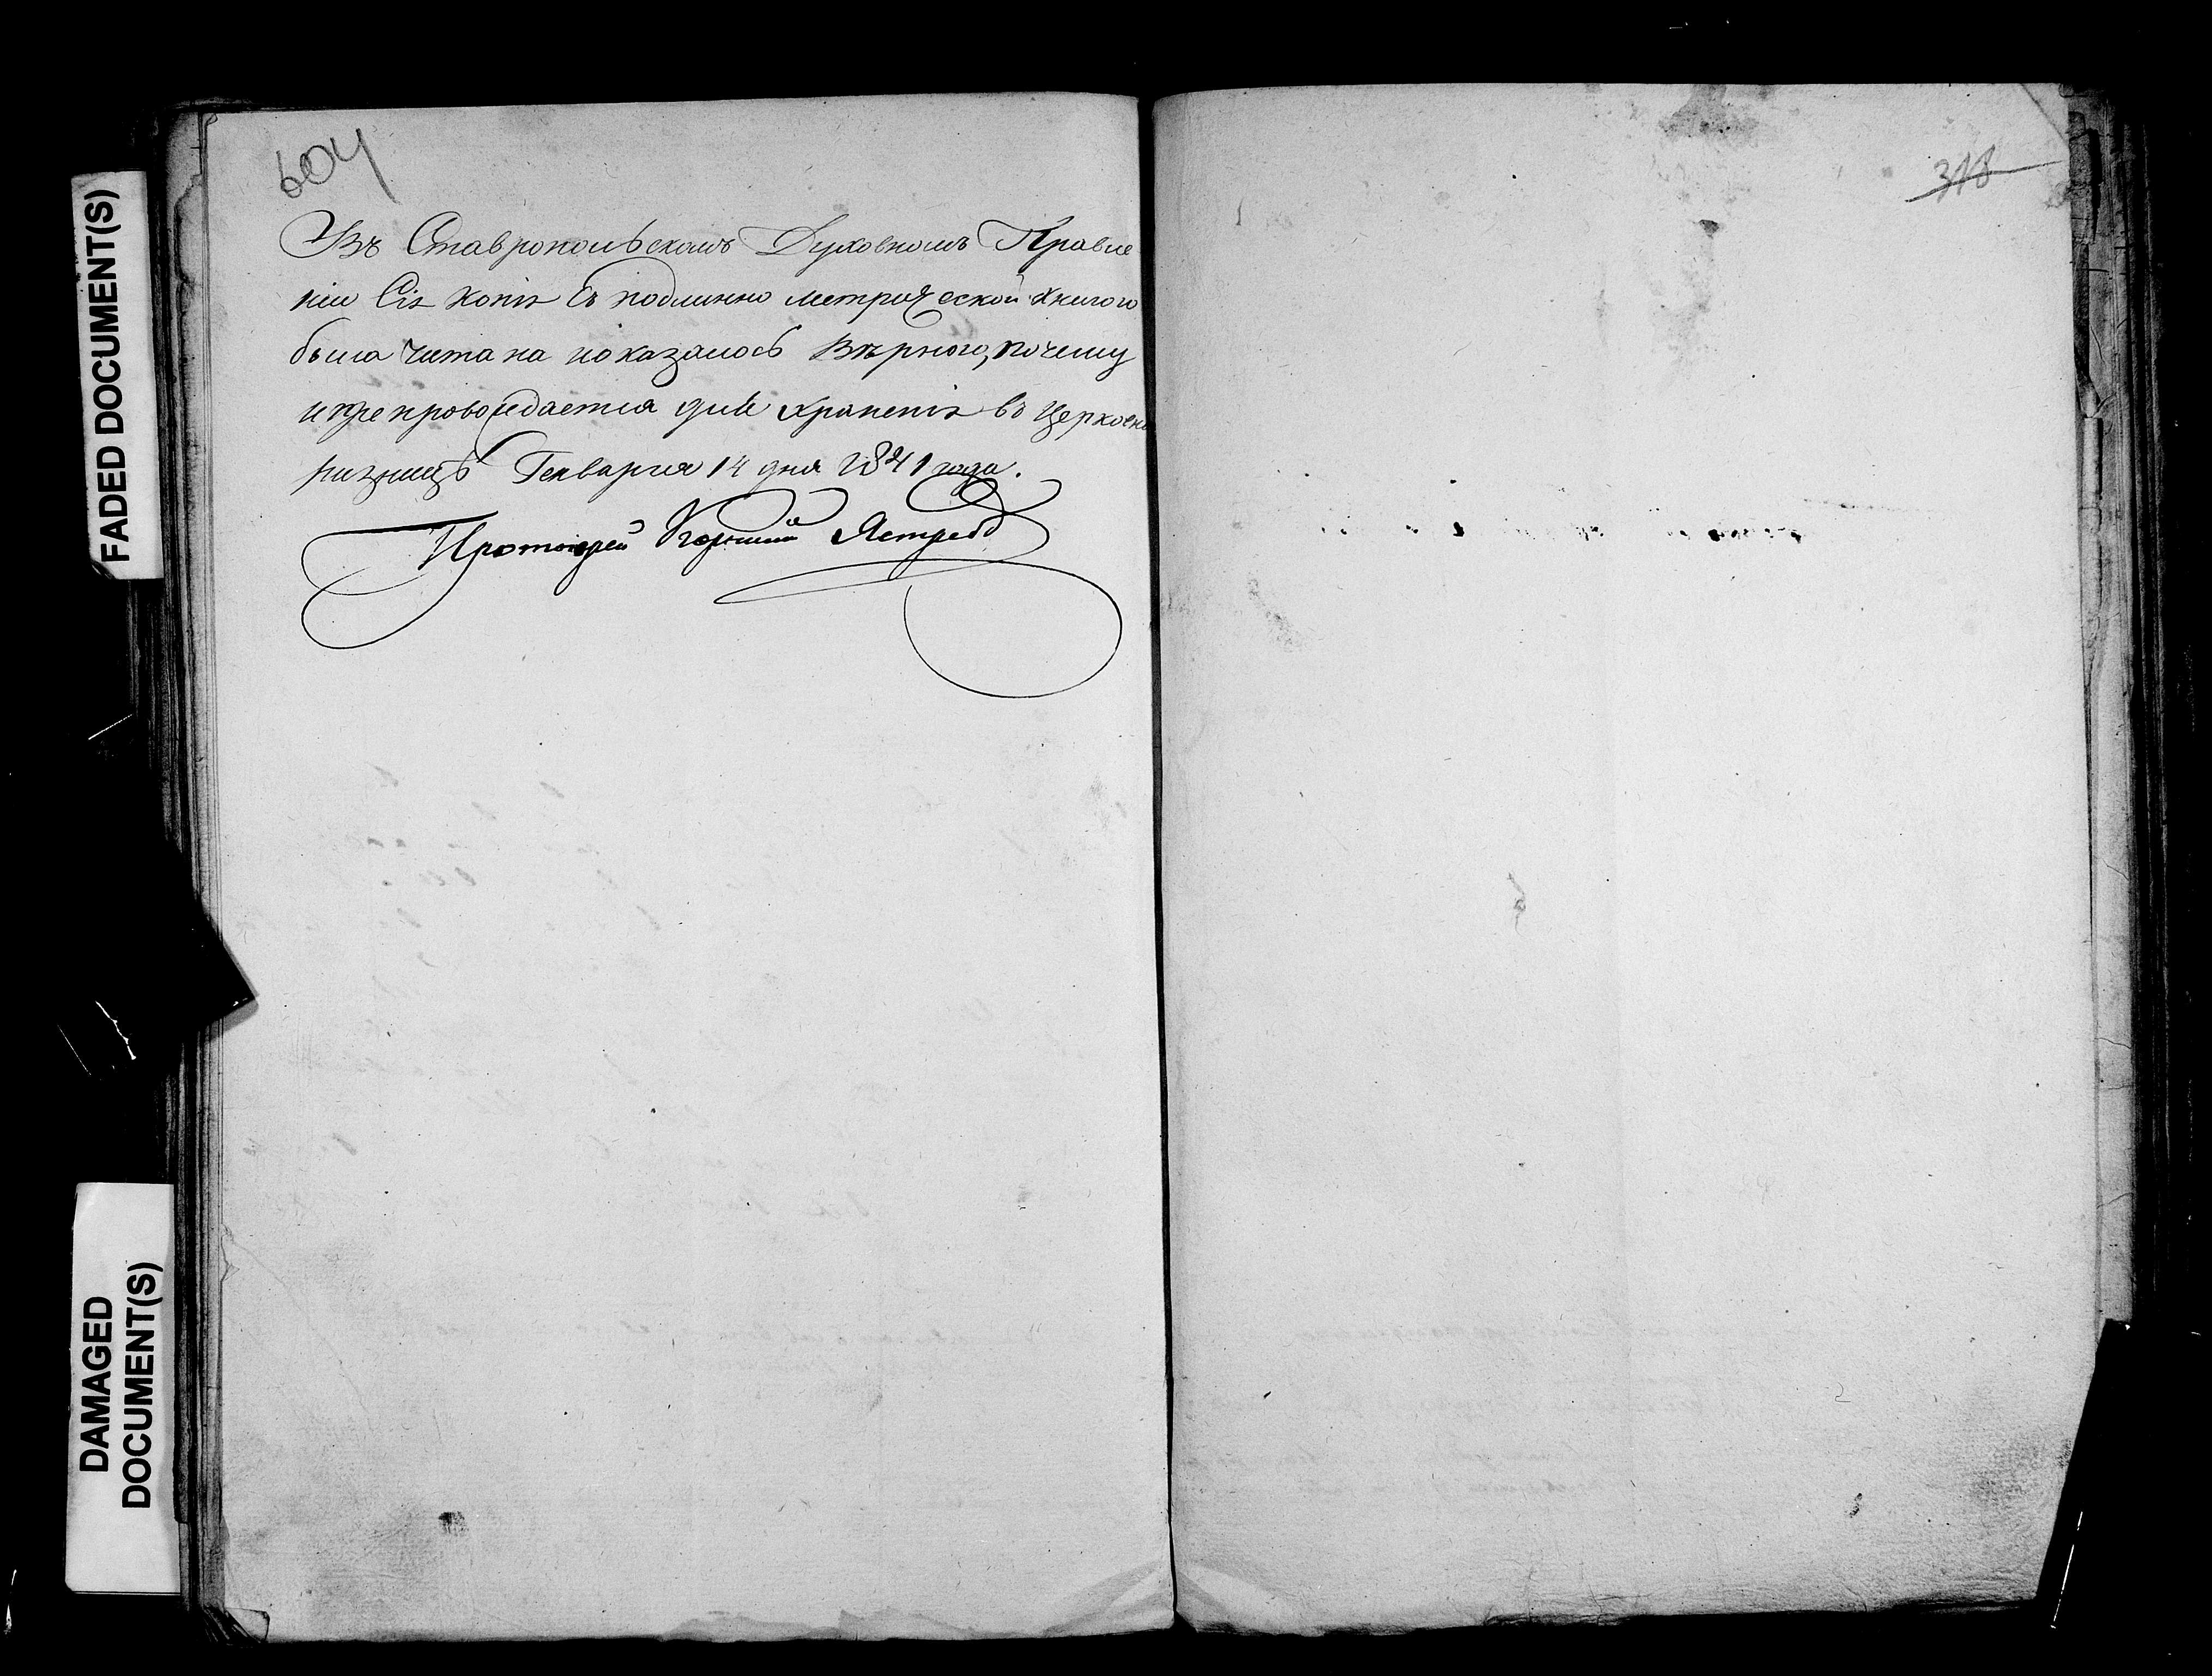 604
Въ Ставропольскомъ Духовномъ Правле
ніи Сія копія Съ подлинно метрической книгою
была читана и оказалось Вѣрною, почему
и препровождается для храненія въ Церковн
ризницѣ Генваря 14 дня 1841 года.
Протоіерей Ястребо
318
FADED DOCUMENT(S)
DAMAGED
DOCUMENT(S)